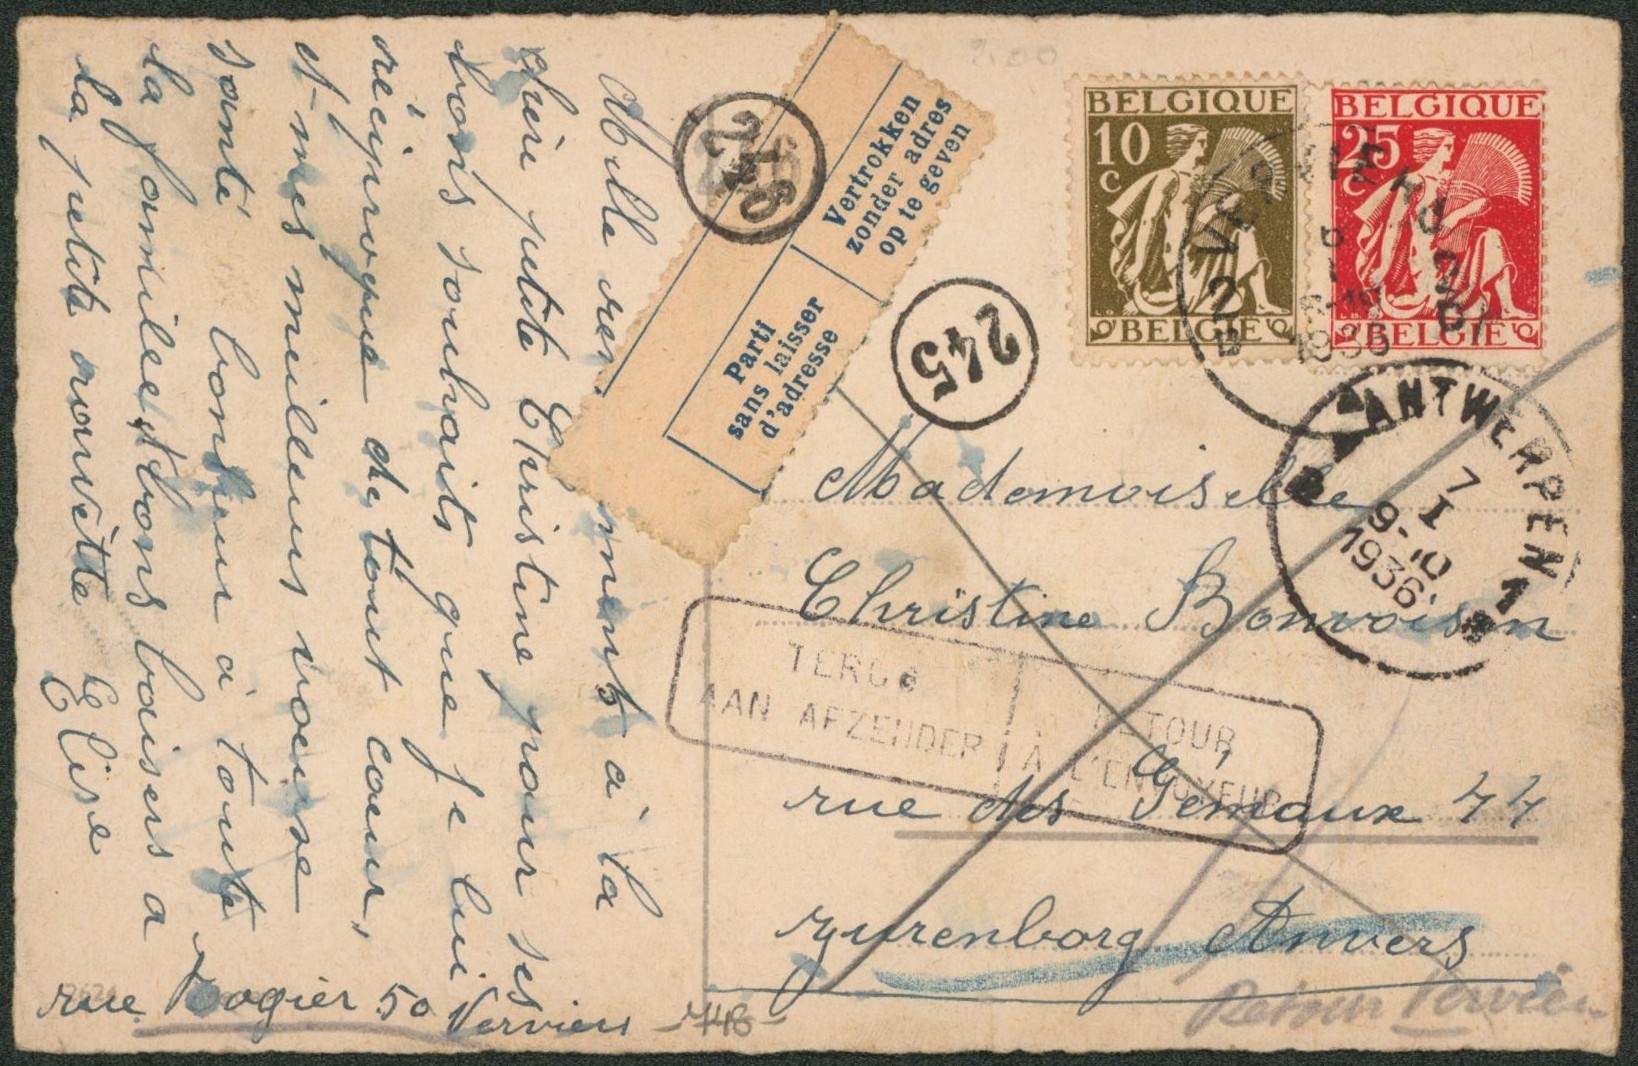 Mille remerciments à la
chère petite Christine pour ses
bons souhaits que je lui
réciproque de tout cœur,
et mes meilleurs vœux de
santé bonheur à toute
la famille, & bons baisers a
la petite nouvette Elise
rue Rogier 50 Verviers
748
246
Vertrokken
zonder adres
op te geven
Parti
sans laisser
d'adresse
245
BELGIQUE
10
c
BELGIE
BELGIQUE
25
c
BELGIE
VERVIERS
1936
ANTWERPEN 1
7
I
9-10
1936
TERUG
AAN AFZENDER
RETOUR
À L'ENVOYEUR
Mademoiselle
Christine Bonvoisin
rue des Gémaux 44
Zurenborg Anvers
Retour Verviers